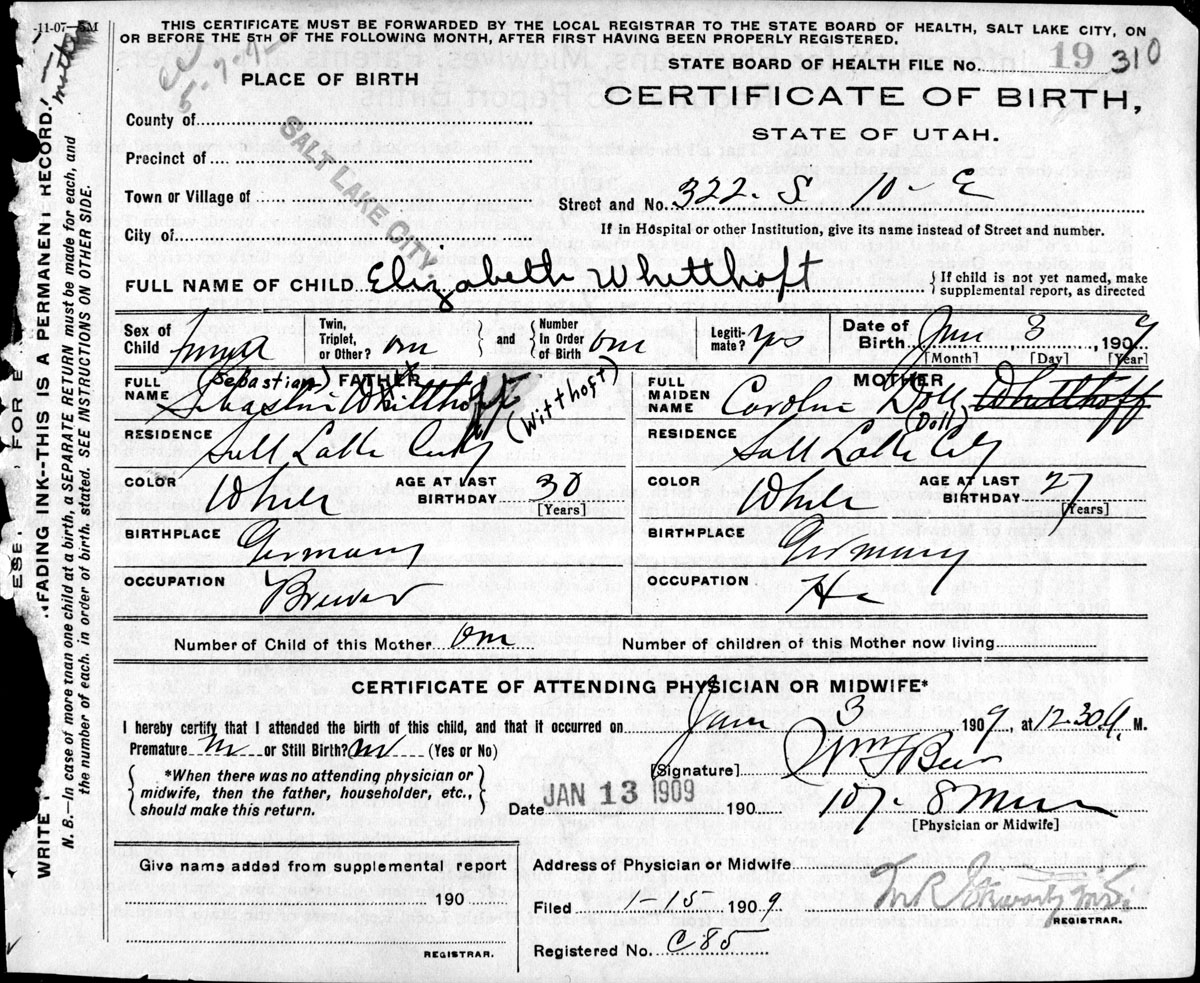 -11-07-5M
THIS CERTIFICATE MUST BE FORWARDED BY THE LOCAL REGISTRAR TO THE STATE BOARD OF HEALTH, SALT LAKE CITY, ON
OR BEFORE THE 5TH OF THE FOLLOWING MONTH, AFTER FIRST HAVING BEEN PROPERLY REGISTERED.
PLACE OF BIRTH
STATE BOARD OF HEALTH FILE No. 19 310
CERTIFICATE OF BIRTH,
STATE OF UTAH.
County of
Precinct of
Town or Village of
City of
SALT LAKE CITY.
Street and No. 322. S 10 - E
If in Hospital or other Institution, give its name instead of Street and number.
FULL NAME OF CHILD Elizabeth Whitthoft { If child is not yet named, make
supplemental report, as directed
Sex of Child Twin, Triplet, or Other? one } and { Number In Order of Birth one Legiti- mate? yes Date of Birth Jan 3, 1909
[Month] [Day] [Year]
FATHER
FULL NAME (Sebastian) Whitthoft (Witthoft)
RESIDENCE Salt Lake City
COLOR White AGE AT LAST BIRTHDAY 30
[Years]
BIRTHPLACE Germany
OCCUPATION Brewer
MOTHER
FULL MAIDEN NAME Caroline Doll Whitthoff
(Doll)
RESIDENCE Salt Lake City
COLOR White AGE AT LAST BIRTHDAY 27
[Years]
BIRTHPLACE Germany
OCCUPATION
Number of Child of this Mother one Number of children of this Mother now living
CERTIFICATE OF ATTENDING PHYSICIAN OR MIDWIFE*
I hereby certify that I attended the birth of this child, and that it occurred on Jan 3 1909, at 12-30 A. M.
Premature no or Still Birth? no (Yes or No)
{ *When there was no attending physician or
midwife, then the father, householder, etc.,
should make this return. }
[Signature]
Date JAN 13 1909 190
[Physician or Midwife]
Give name added from supplemental report
190
REGISTRAR.
Address of Physician or Midwife
Filed 1-15- 1909
REGISTRAR.
Registered No. C85
FADING INK--THIS IS A PERMANENT RECORD.
N. B.—In case of more than one child at a birth, a SEPARATE RETURN must be made for each, and
the number of each, in order of birth, stated. SEE INSTRUCTIONS ON OTHER SIDE.